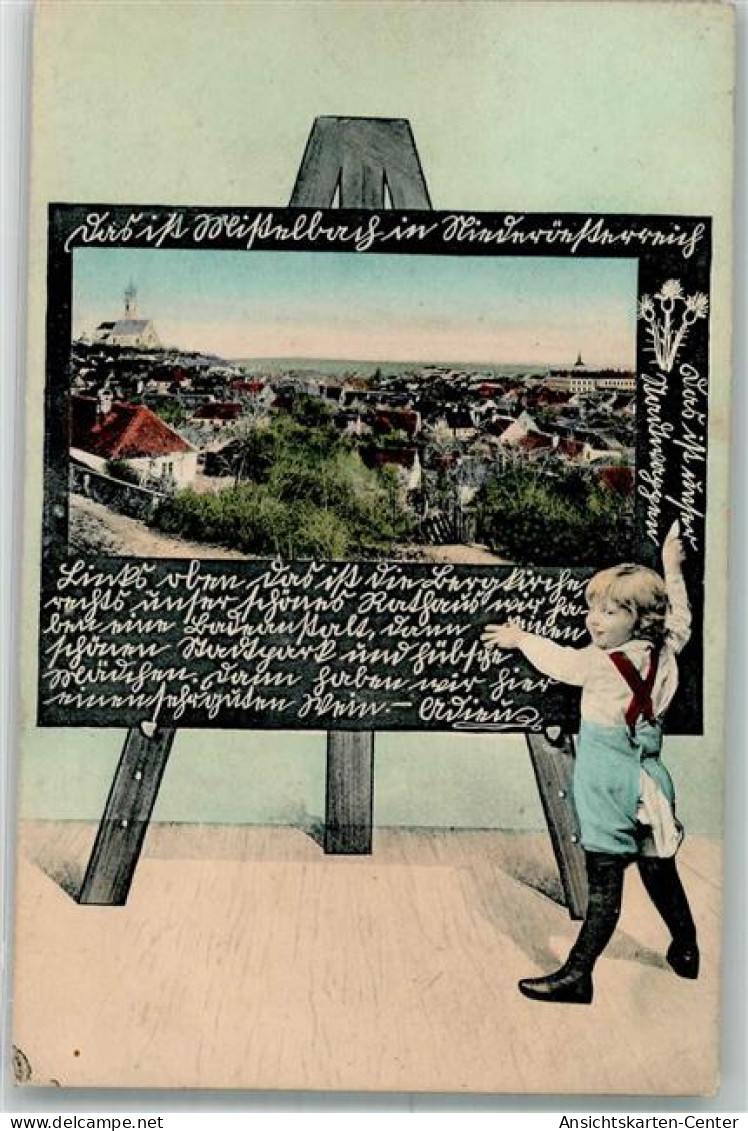 Das ist Mistelbach in Niederöesterreich
Das ist unser
Links oben, das ist die Bergkirche,
rechts unser schönes Rathaus, wir ha-
ben eine Badeanstalt, dann einen
schönen Stadtpark und hübsche
Mädchen. Dann haben wir hier
einen sehr guten Wein. – Adieu
Ansichtskarten-Center